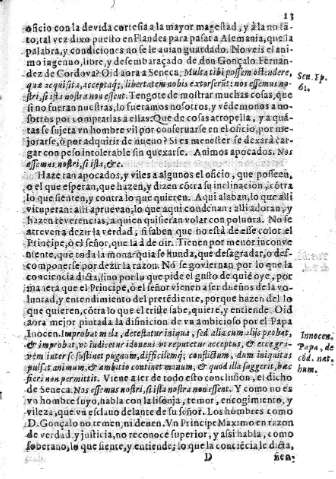 13
oficio con la devida cortesia a la mayor magestad, y a la no ta-
to, tal vez dixo puesto en Flandes para passar a Alemania, que la
palabra, y condiciones no se le avian guardado. No veis el ani-
mo ingenuo, libre, y desembaraçado de don Gonçalo Fernan-
dez de Cordova? Oid aora a Seneca. Multa tibi possem ostendere,
quæ acquisita, libertatem nobis extorserint: nos essemus no-
stri, si ista nostra non essent. Tengote de mostrar muchas cosas, que
si no fueran nuestras, lo fueramos nosotros, y vèdemonos a no-
sotros por comprarlas a ellas. Que de cosas atropella, y a qua-
tas se sujeta vn hombre vil por conservarse en el oficio, por me-
jorarse, ò por adquirir de nuevo? Si es menester se dexarà car-
gar con peso intolerable sin quexarse. Animos apocados. Nos
essemus nostri, si ista, &c.
Sen. Ep.
61.
Hazè tan apocados, y viles a algunos el oficio, que posseen,
o el que esperan, que hazen, y dizen còtra su inclinacion, còtra
lo que sienten, y contra lo que quieren. Aqui alaban, lo que alli
vituperan: alli aprueven, lo que aqui condenan: alli adoran, y
hazen reverencias, a quien quisieran volar con polvora. No se
atreven a dezir la verdad, ni saben que no està de esse color el
Principe, ò el señor, que la à de oir. Tienen por menor inconve
niente, que toda la monarquia se hunda, que desagradar, o des-
componerse por dezir la razon. Nò se goviernan por lo que la
conciencia dicta, sino por lo que pide el gusto de quiè oye, por
manera que el Principe, ò el señor vienen a ser dueños de la vo-
luntad, y entendimiento del pretèdiente, porque hazen del lo
que quieren, còtra lo que el triste sabe, quiere, y entiende. Oid
aora mejor pintada la disincion de vn ambicioso por el Papa
Inocen.
Innocen.
Papa, de
còd. nat.
hum.
facit non permittit. Viene a ser de todo esto conclusion, el dicho
de Seneca. Nos essemus nostri, si ista nostra non essent. Y como no es
vn hombre suyo, habla con la lisonja, temor, encogimiento, y
vileza, que vn esclavo delante de su señor. Los hombres como
D. Gonçalo no temen, ni deven. Vn Principe Maximo en razon
de verdad, y justicia, no reconoce superior, y assi habla, como
soberano, lo que siente, y entiende; lo que la conciècia le dicta,
D
sen-